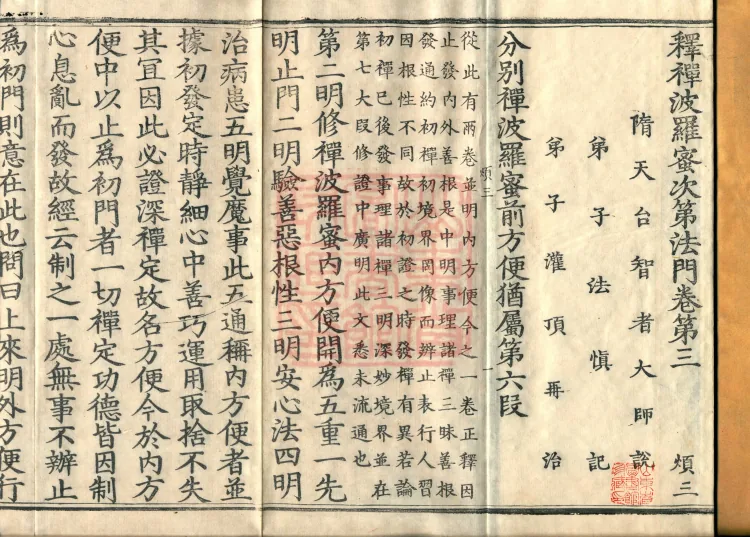 釋禪波羅蜜次第法門卷第三 煩三
隋天台智者大師說
弟子法愼記
弟子灌頂再治
分別禪波羅蜜前方便猶屬第六段
煩三 一
從此有兩卷並明內方便今之一卷正釋因
止發內外善根是中明事理諸禪三昧善根
發通約初禪初境界罔像而辨止表行人習
因根性不同故於初證之時發禪有異若論
初禪已後發事理諸禪三明深妙境界並在
第七大段修證中廣明此文悉未流通也
第二明修禪波羅蜜內方便開為五重一先
明止門二明驗善惡根性三明安心法四明
治病患五明覺魔事此五通稱內方便者並
據初發定時靜細心中善巧運用取捨不失
其冝因此必證深禪定故名方便今於內方
便中以止爲初門者一切禪定功德皆因制
心息亂而發故經云制之一處無事不辦止
爲初門則意在此也問曰上來明外方便行